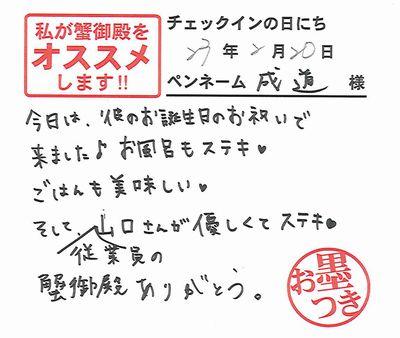 私が蟹御殿を
オススメ
します!!
チェックインの日にち
27年2月20日
ペンネーム 成道 様
今日は、彼のお誕生日のお祝いで
来ました♪ お風呂もステキ♥
ごはんも美味しい♥
そして、山口さんが優しくてステキ♥
従業員の
蟹御殿ありがとう。
お墨つき